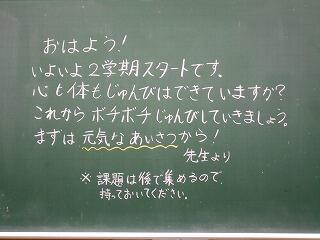 おはよう!
いよいよ2学期スタートです。
心も体もじゅんびはできていますか?
これからボチボチじゅんびしていきましょう。
まずは 元気なあいさつから!
先生より
※ 課題は後で集めるので、
持っておいてください。